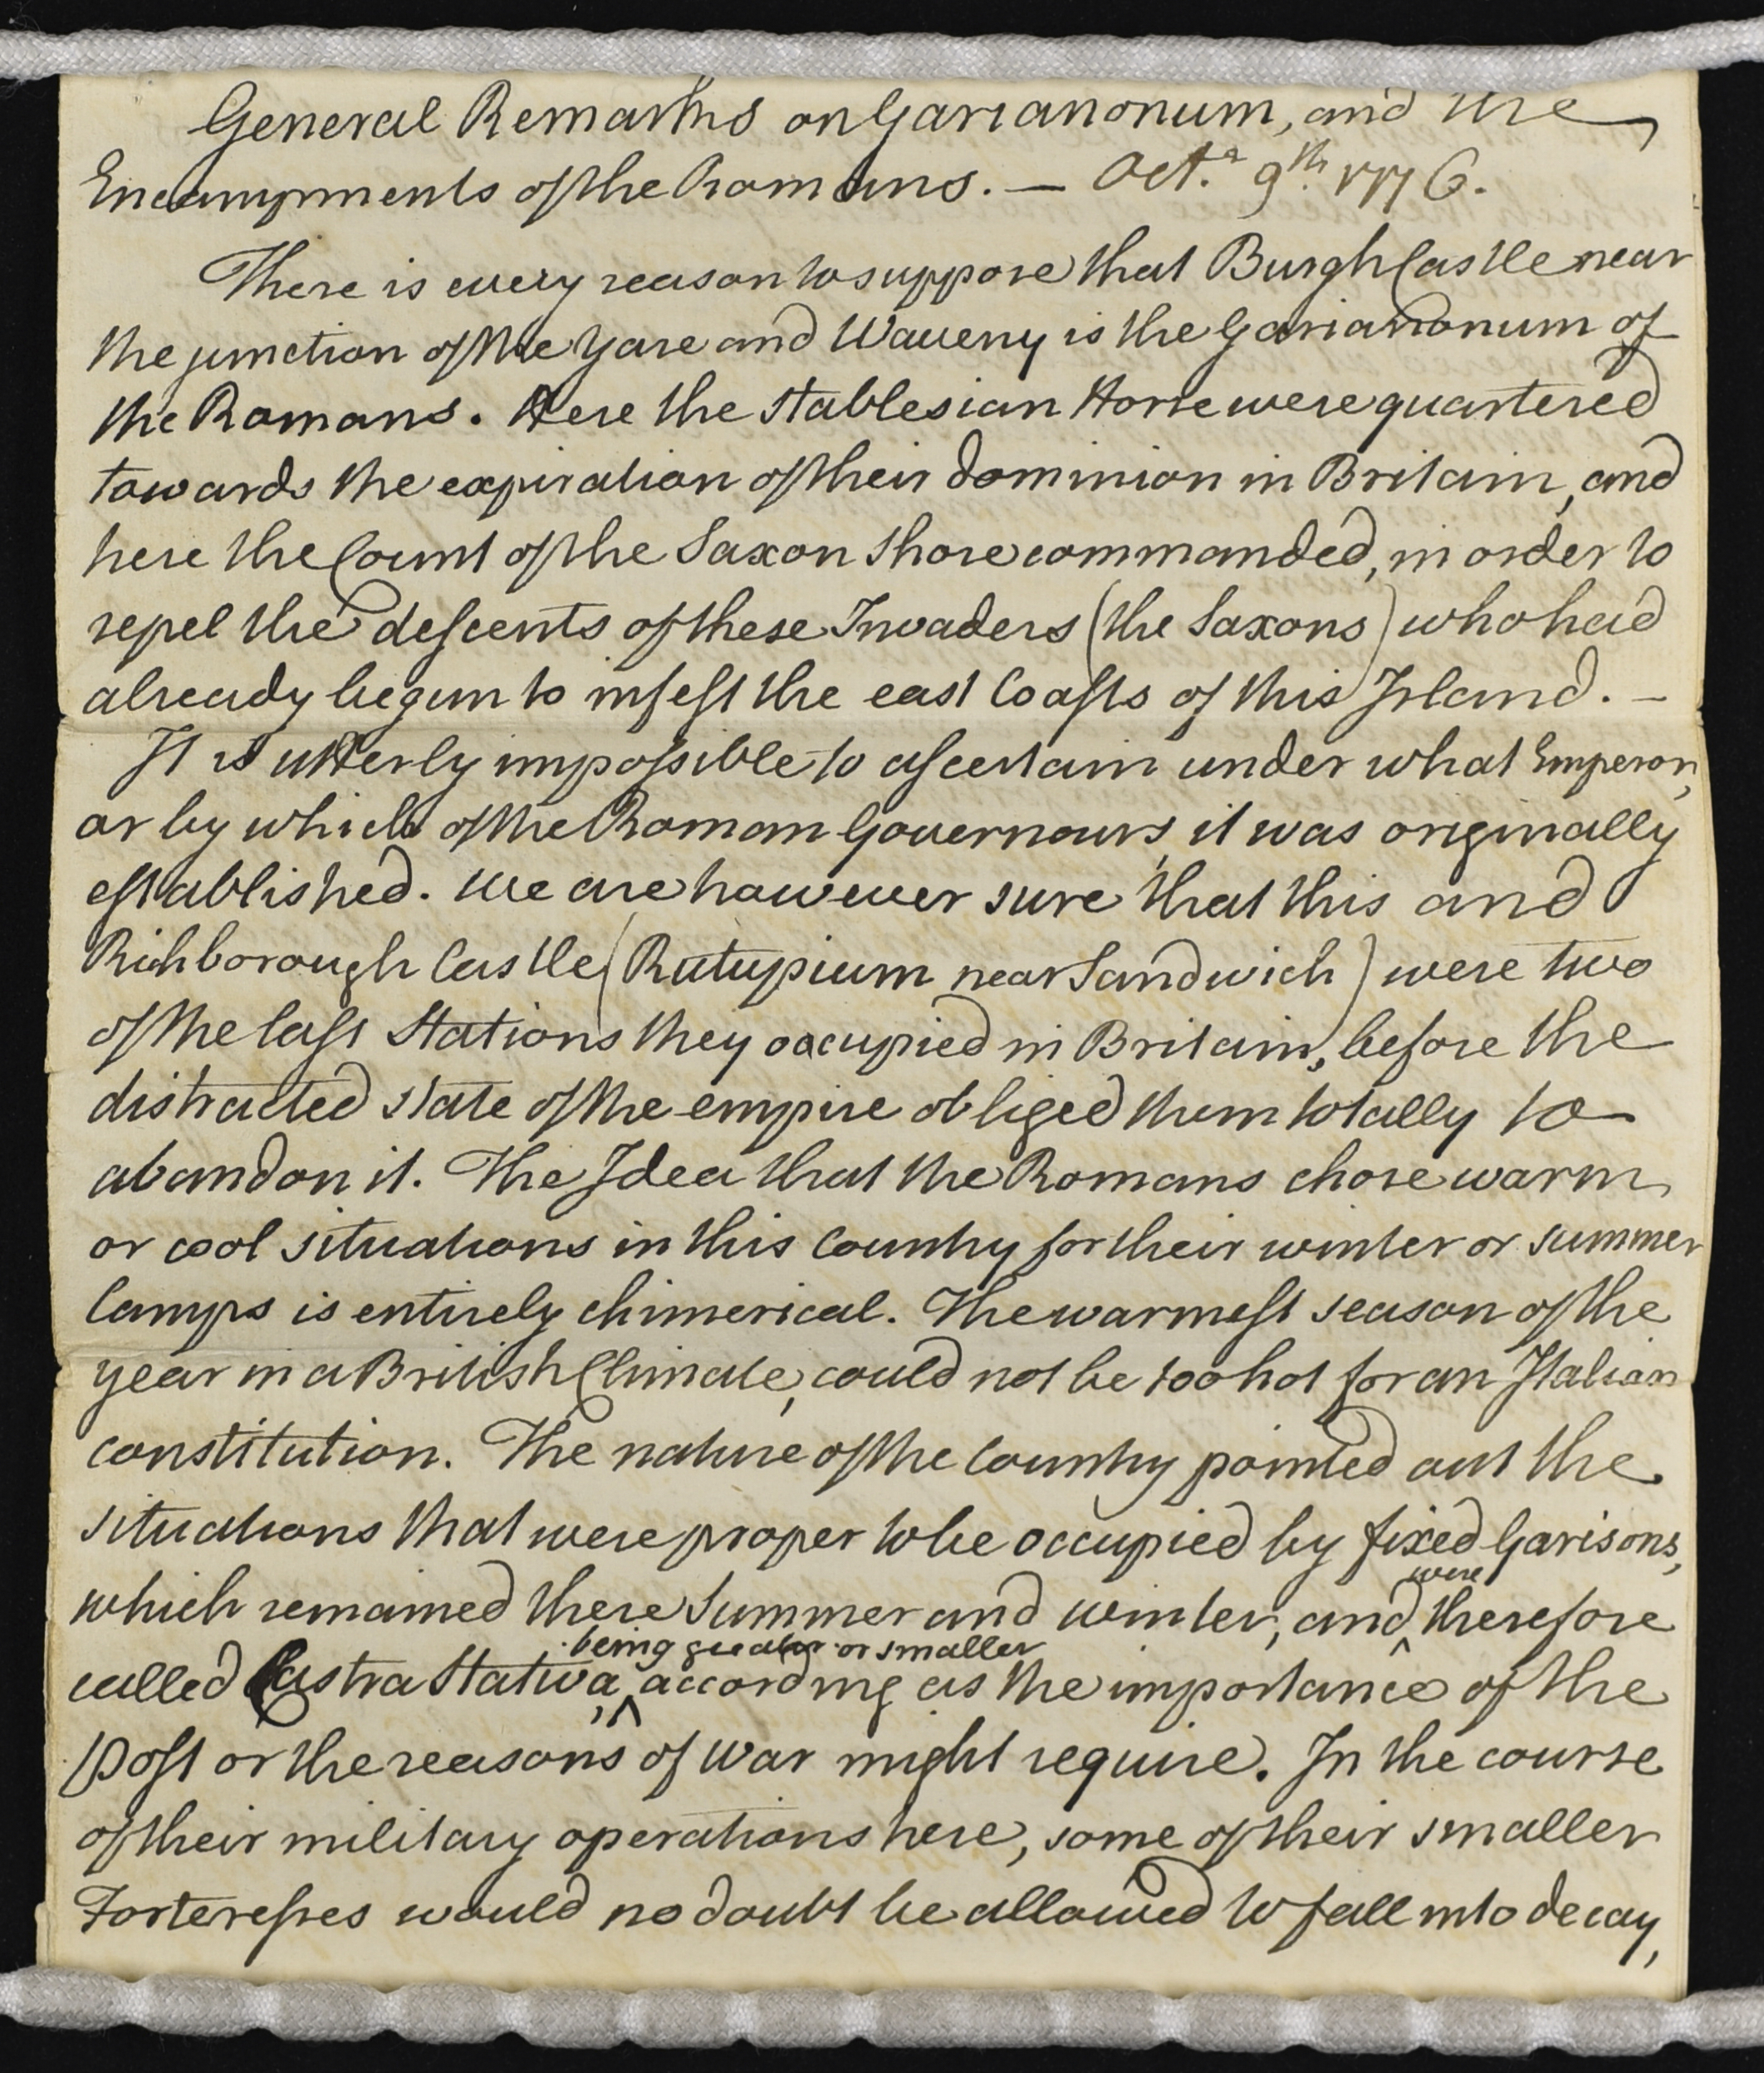 General Remarks on Garianonum, and the
Encampments of the Romans. — Oct.r 9th. 1776.
There is every reason to suppose that Burgh Castle near
the junction of the Yare and Waveny is the Garianonum of
the Romans. Here the Stablesian Horse were quartered
towards the expiration of their dominion in Britain, and
here the Count of the Saxon Shore commanded, in order to
repel the descents of these Invaders (the Saxons) who had
already begun to infest the east Coasts of this Island. —
It is utterly impossible to ascertain under what Emperor,
or by which of the Roman Governours, it was originally
established. We are however sure that this and
Richborough Castle (Rutupium near Sandwich) were two
of the last Stations they occupied in Britain, before the
distracted state of the empire obliged them totally to
abandon it. The Idea that the Romans chose warm
or cool situations in this Country for their winter or summer
Camps is entirely chimerical. The warmest season of the
year in a British Climate, could not be too hot for an Italian
constitution. The nature of the Country pointed out the
situations that were proper to be occupied by fixed Garisons,
which remained there Summer and winter, and were therefore
called Castra Stativa, being greater or smaller according as the importance of the
Post or the reasons of war might require. In the course
of their military operations here, some of their smaller
Forteresses would no doubt be allowed to fall into decay,